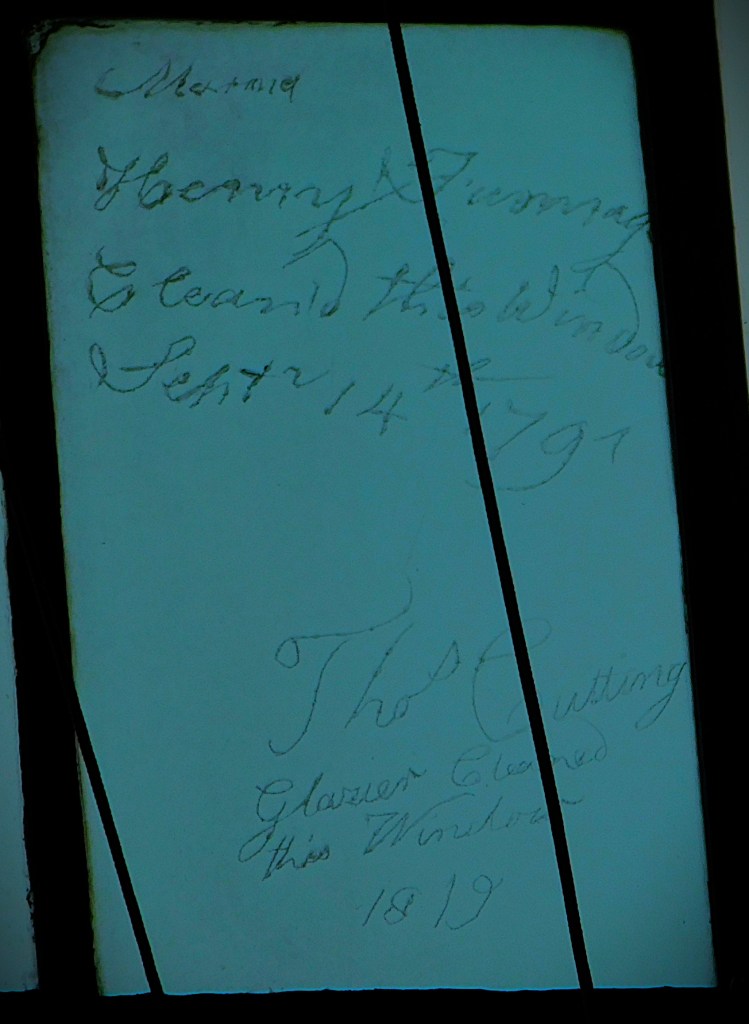 Henry Frommage
Clean'd this Window
Septr 14th 1791
Thos Cutting
Glazier Cleaned
this Window
1819